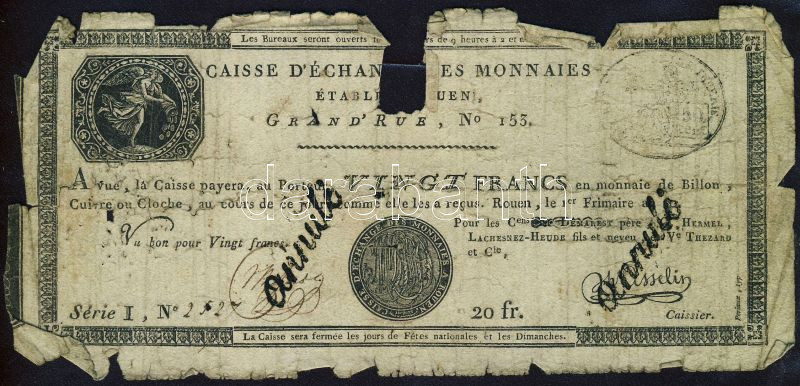 Les Bureaux seront ouverts rs de 9 heures à 2 et
CAISSE D'ÉCHAN ES MONNAIES
ÉTABL OUEN,
GRAND'RUE, No 153.
A vue, la Caisse payera, au Porteur VINGT FRANCS en monnaie de Billon,
Cuivre ou Cloche, au cours de ce jour comme elle les a reçus. Rouen, le 1er Frimaire a
Pour les Cens DEMAREST père HERMEL,
LACHESNEZ-HEUDE fils et neveu Ve THEZARD
et Cie,
bon pour Vingt francs.
annulé
annulé
CAISSE D'ÉCHANGE DES MONNAIES À ROUEN
Série I, No
20 fr.
Caissier.
La Caisse sera fermée les jours de Fêtes nationales et les Dimanches.
darabanth